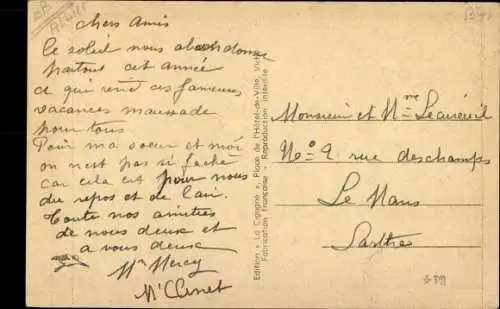 chers Amis
le soleil nous abandonne
partout cet année
ce qui rend ces fameuses
vacances maussade
pour tous
Pour ma soeur et moi
on n'est pas si faché
car cela est pour nous
du repos et de l'air.
Toute nos amitiés
de nous deux et
a vous deux
Mme Mercy
Edition « La Cigogne », Place de l'Hôtel-de-Ville, Vichy
Fabrication Française - Reproduction interdite
Monsieur et Mme
No 2 rue deschamps
Le Mans
Sarthe